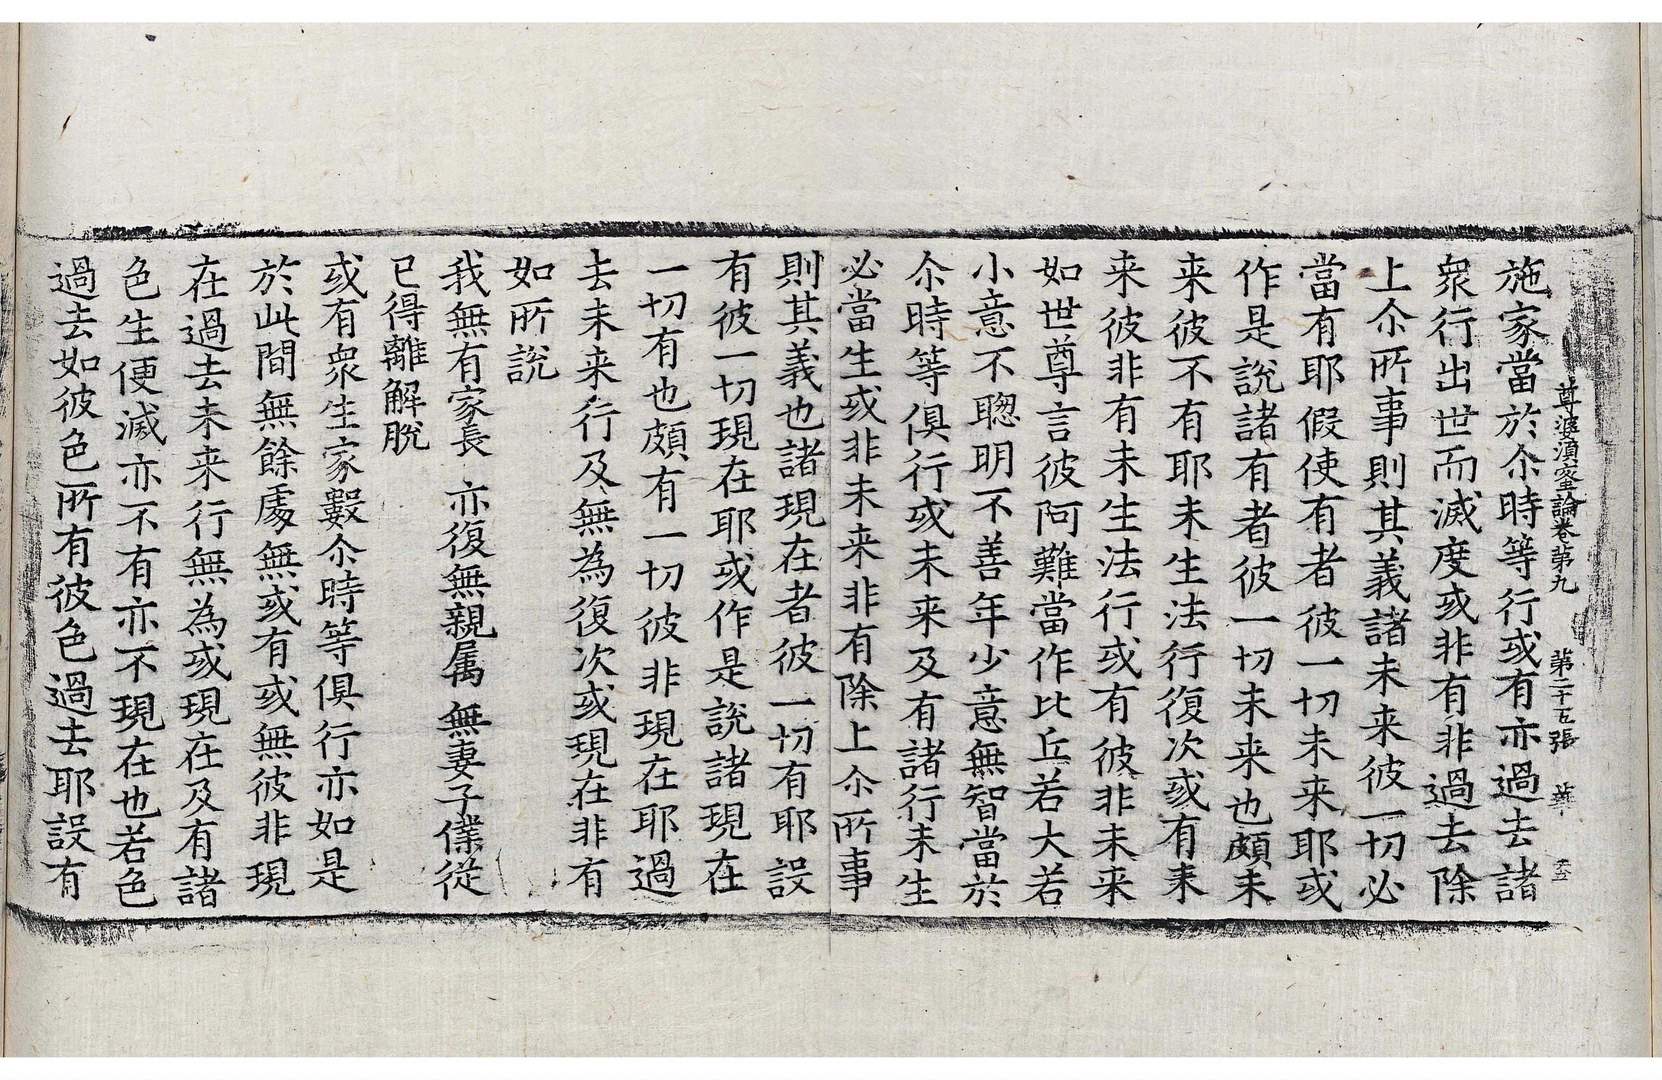 尊婆湏蜜論卷第九　第二十五張
施家當於尒時等行或有亦過去諸
衆行出世而滅度或非有非過去除
上尒所事則其義諸未来彼一切必
當有耶假使有者彼一切未来耶或
作是說諸有者彼一切未来也頗未
来彼不有耶未生法行復次或有未
来彼非有未生法行或有彼非未来
如世尊言彼阿難當作比丘若大若
小意不聰明不善年少意無智當於
尒時等俱行或未来及有諸行未生
必當生或非未来非有除上尒所事
則其義也諸現在者彼一切有耶設
有彼一切現在耶或作是說諸現在
一切有也頗有一切彼非現在耶過
去未来行及無為復次或現在非有
如所說
我無有家長　亦復無親属　無妻子僕從
已得離解脫
或有衆生家數尒時等俱行亦如是
於此間無餘處無或有或無彼非現
在過去未来行無為或現在及有諸
色生便滅亦不有亦不現在也若色
過去如彼色所有彼色過去耶設有